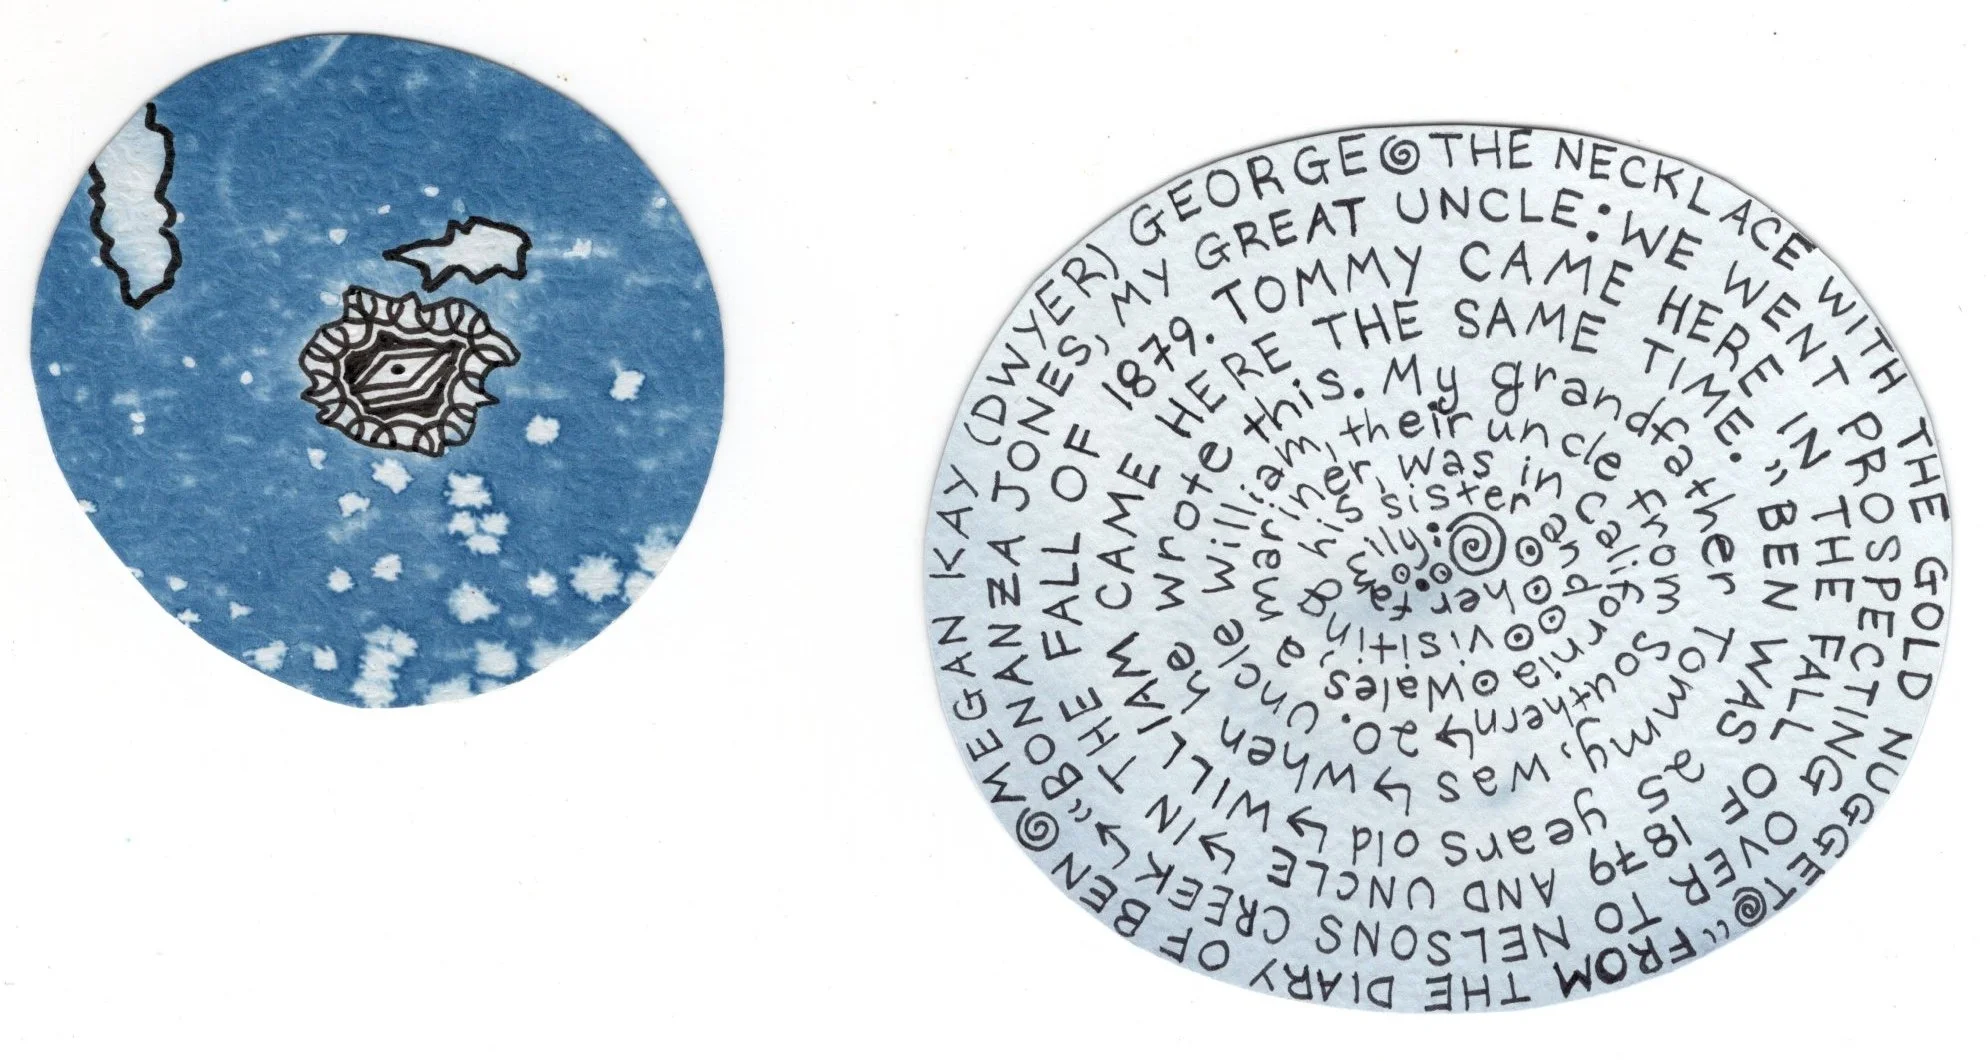 MEGAN KAY (DWYER) GEORGE THE NECKLACE WITH THE GOLD NUGGET "FROM THE DIARY OF BEN
"BONANZA JONES, MY GREAT UNCLE: WE WENT PROSPECTING OVER TO NELSONS CREEK →
IN THE FALL OF 1879. TOMMY CAME HERE IN THE FALL OF 1879 AND UNCLE →
WILLIAM CAME HERE THE SAME TIME." BEN WAS 25 years old →
when he wrote this. My grandfather Tommy, was →
20. Uncle William, their uncle from Southern →
Wales, a mariner, was in California
visiting his sister and
her family: